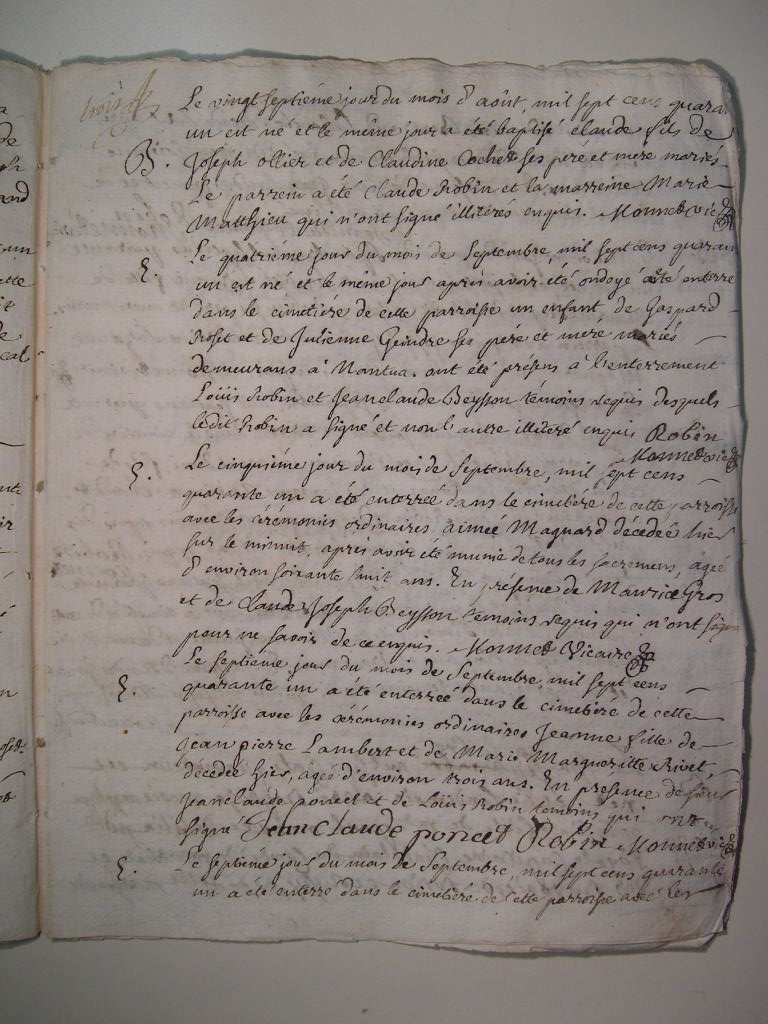 trois
Le vingt septieme jour du mois d'août, mil sept cens quara
un est né et le même jour a été baptisé claude fils de
B. Joseph ollier et de Claudine Cochet ses peré et mere mariés
Le parrein a été Claude Robin et la marreine Marie
Matthieu qui n'ont signé illiterés enquis. Monnet vic
Le quatriéme jour du mois de Septembre, mil sept cens quaran
E. un est né et le même jour aprés avoir été ondoyé a été enterré
dans le cimetiére de cette parroisse un enfant de Gaspard
Roset et de Julienne Geindre ses peré et meré mariés
demeurans à Nantua. ont été présens à l'enterrement
Loüis Robin et Jeanclaude Beysson témoins requis desquels
ledit Robin a signé et non l'autre illiteré enquis Robin
Monnet vic
E. Le cinquiéme jour du mois de Septembre, mil sept cens
quarante un a été enterreé dans le cimetiére de cette parroisse
avec les cérémonies ordinaires aimeé Maguard décedeé hier
sur le minuit, aprés avoir eté munie de tous les sacremens, ageé
d'environ soixante huit ans. En présence de Maurice Gros
et de Claude Joseph Beysson témoins requis qui n'ont signé
pour ne savoir de ce enquis. Monnet Vicaire
Le septiéme jour du mois de Septembre, mil sept cens
E. quarante un a été enterreé dans le cimetiére de cette
parroisse avec les cérémonies ordinaires Jeanne fille de
Jean pierre Lambert et de Marie Margueritte Rivet,
décedeé hier, ageé d'environ trois ans. En présence de
Jeanclaude poncet et de Loüis Robin témoins qui ont
signé Jean Claude poncet Robin Monnet vic
E. Le septiéme jour du mois de Septembre, mil sept cens quarante
un a eté enterré dans le cimetiére de cette parroisse avec les